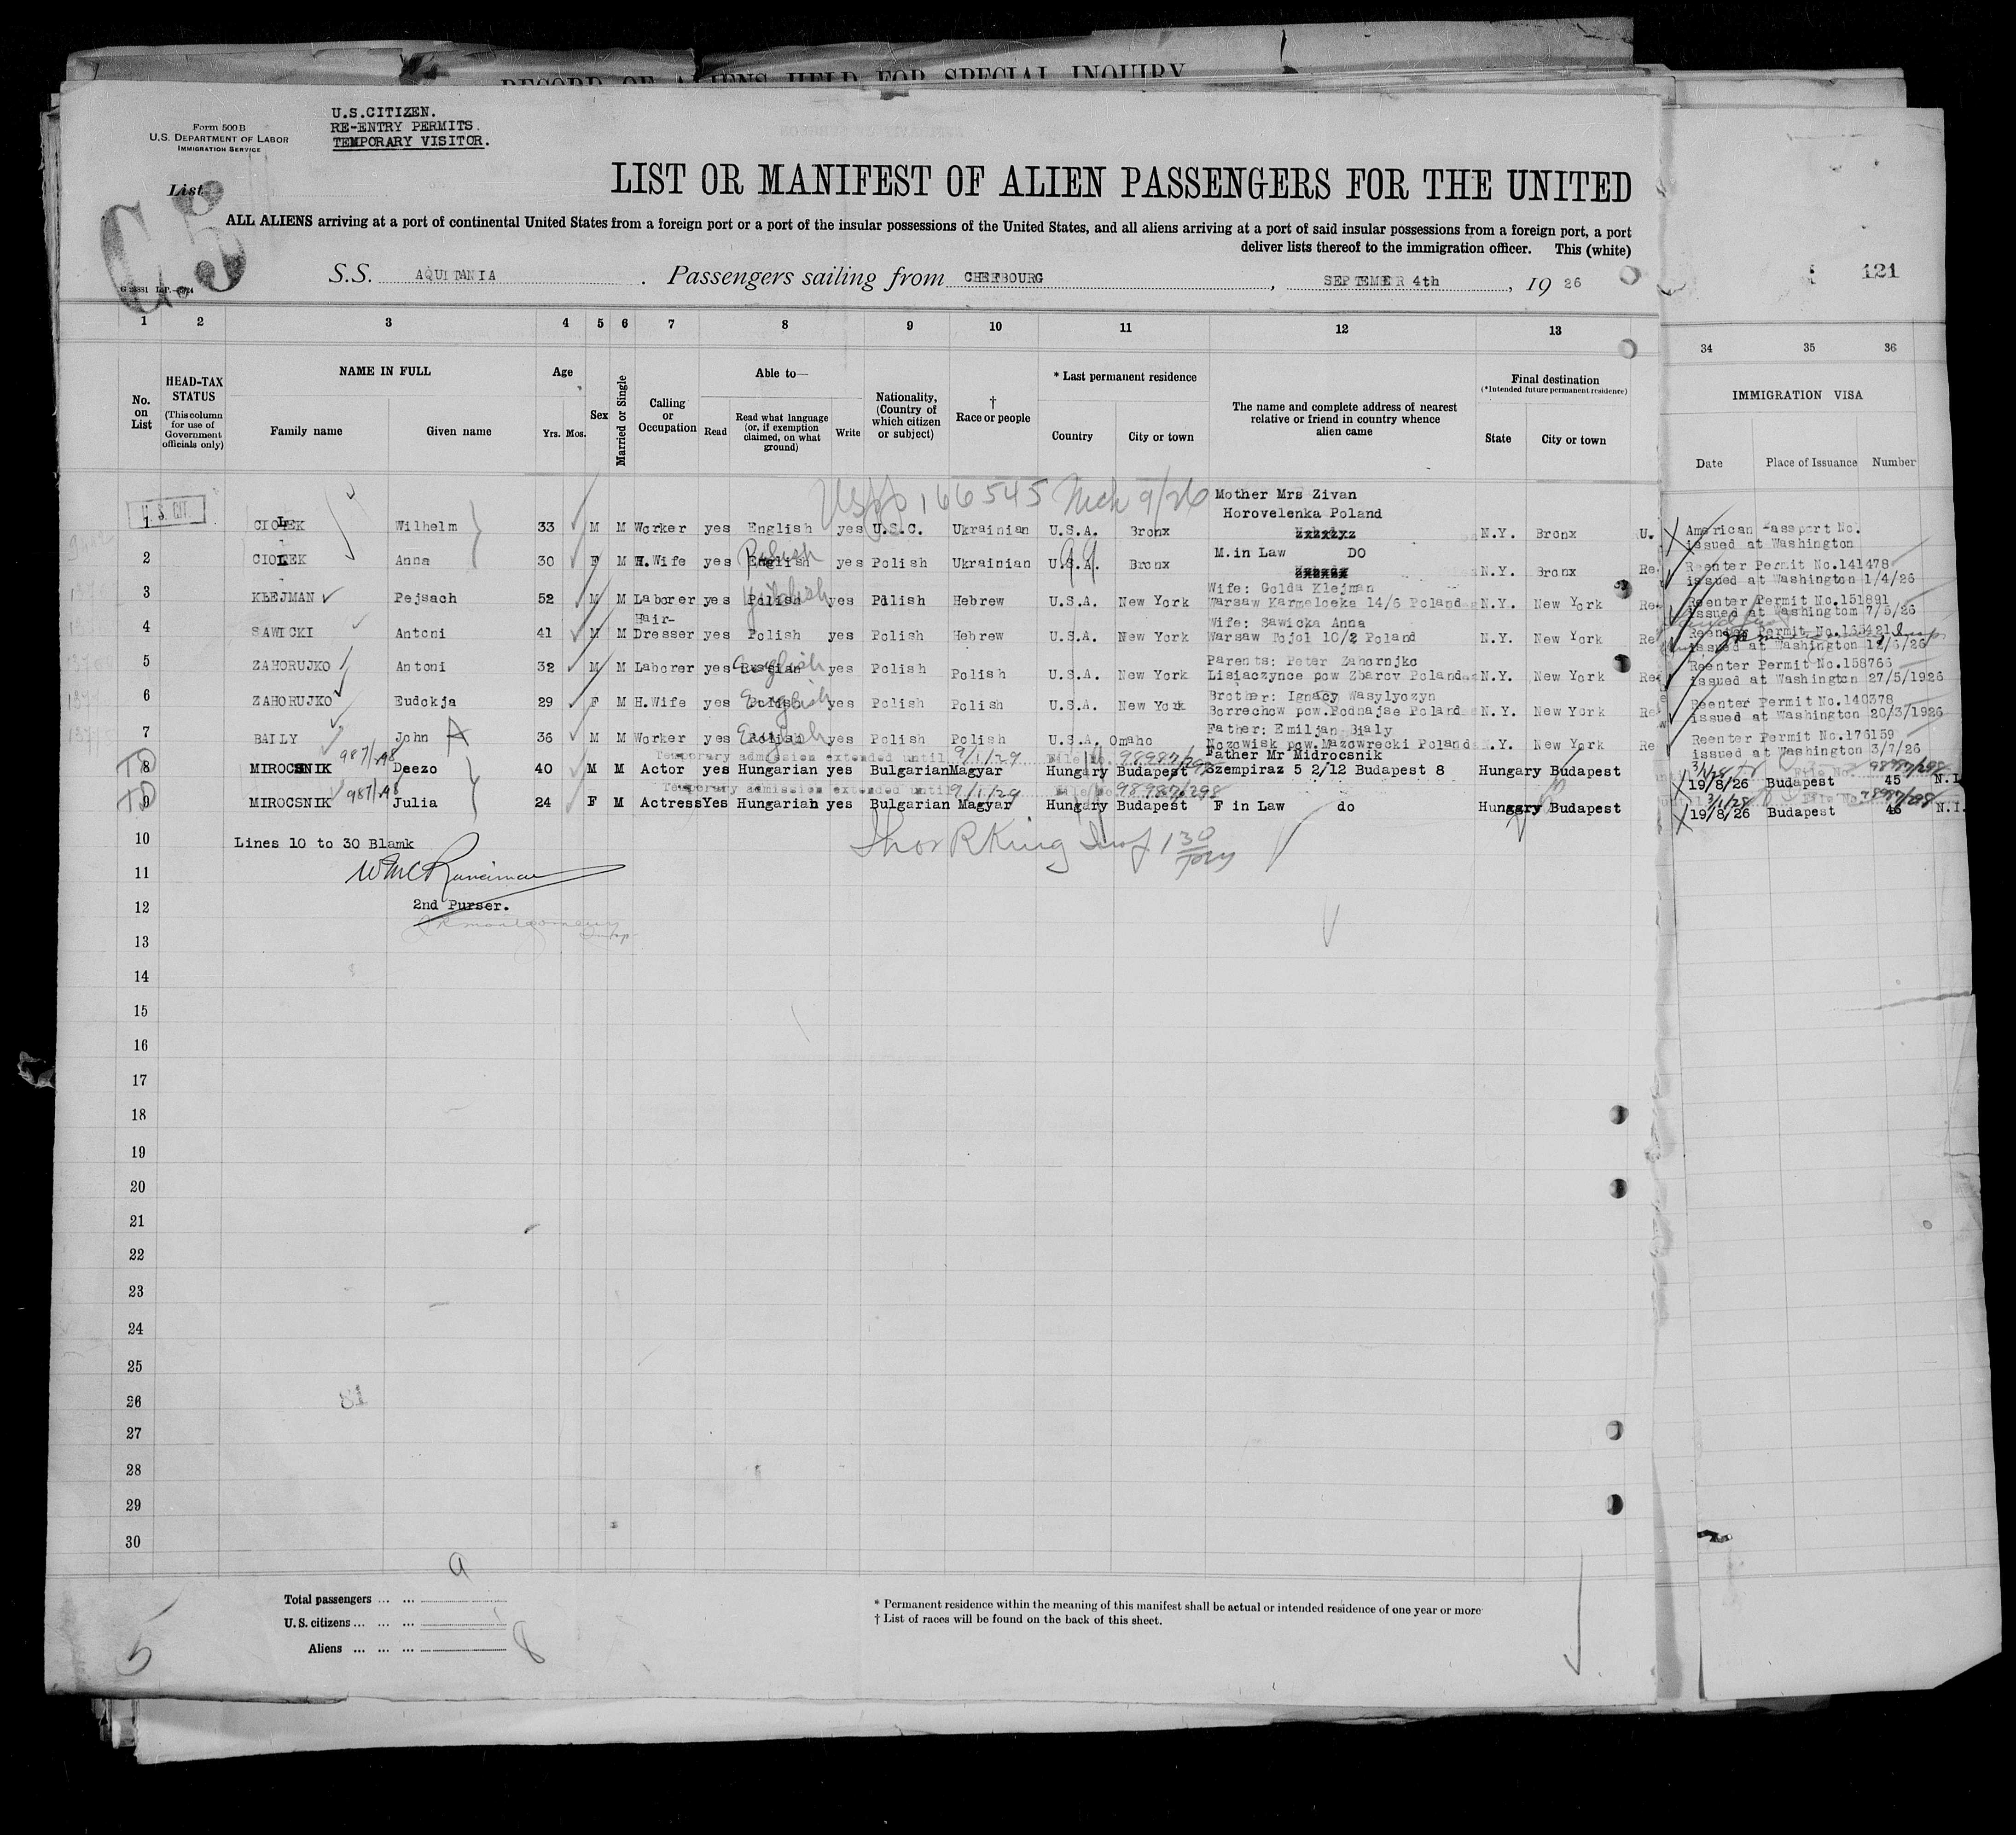 RECORD OF ALIENS HELD FOR SPECIAL INQUIRY
Form 500 B
U.S. DEPARTMENT OF LABOR
IMMIGRATION SERVICE
U.S.CITIZEN.
RE-ENTRY PERMITS.
TEMPORARY VISITOR.
List
C.5
LIST OR MANIFEST OF ALIEN PASSENGERS FOR THE UNITED
ALL ALIENS arriving at a port of continental United States from a foreign port or a port of the insular possessions of the United States, and all aliens arriving at a port of said insular possessions from a foreign port, a port
deliver lists thereof to the immigration officer. This (white)
S.S. AQUITANIA . Passengers sailing from CHERBOURG , SEPTEMER 4th , 19 26
121
1 2 3 4 5 6 7 8 9 10 11 12 13 34 35 36
No. on List
HEAD-TAX STATUS (This column for use of Government officials only)
NAME IN FULL
Family name Given name
Age
Yrs. Mos.
Sex
Married or Single
Calling or Occupation
Able to—
Read Read what language (or, if exemption claimed, on what ground) Write
Nationality, (Country of which citizen or subject)
† Race or people
* Last permanent residence
Country City or town
The name and complete address of nearest relative or friend in country whence alien came
Final destination
(*Intended future permanent residence)
State City or town
IMMIGRATION VISA
Date Place of Issuance Number
U.S. CIT.
166545
9/26
Mother Mrs Zivan
Horovelenka Poland
1 CIOLEK Wilhelm 33 M M Worker yes English yes U.S.C. Ukrainian U.S.A. Bronx N.Y. Bronx U. American Passport No.
issued at Washington
2 CIOLEK Anna 30 F M H.Wife yes English Polish yes Polish Ukrainian U.S.A. Bronx M.in Law DO N.Y. Bronx Re Reenter Permit No.141478
issued at Washington 1/4/26
Wife: Golda Klejman
3 KLEJMAN Pejsach 52 M M Laborer yes Polish Yiddish yes Pdlish Hebrew U.S.A. New York Warsaw Karmelceka 14/6 Poland N.Y. New York Re Reenter Permit No.151891
issued at Washingtom 7/5/26
Hair-
Wife: Sawicka Anna
4 SAWICKI Antoni 41 M M Dresser yes Polish yes Polish Hebrew U.S.A. New York Warsaw Tojol 10/2 Poland N.Y. New York Re Reenter Permit No.165421
issued at Washington 12/6/26
Parents: Peter Zahornjko
5 ZAHORUJKO Antoni 32 M M Laborer yes Russian English yes Polish Polish U.S.A. New York Lisiaczynce pow Zbarov Poland N.Y. New York Re Reenter Permit No.158766
issued at Washington 27/5/1926
Brother: Ignacy Wasylyczyn
6 ZAHORUJKO Eudokja 29 F M H.Wife yes Polish English yes Polish Polish U.S.A. New York Borrechow pow.Podnajse Poland N.Y. New York Re Reenter Permit No.140378
issued at Washington 20/3/1926
Father: Emiljan Bialy
7 BAILY John A 36 M M Worker yes Polish English yes Polish Polish U.S.A. Omaho Kozowisk pow.Mazowrecki Poland N.Y. New York Re Reenter Permit No.176159
issued at Washington 3/7/26
Temporary admission extended until 9/1/29 File No. 98987/298
Father Mr Midrocsnik
8 MIROCSNIK 987/298 Deezo 40 M M Actor yes Hungarian yes Bulgarian Magyar Hungary Budapest Szempiraz 5 2/12 Budapest 8 Hungary Budapest 19/8/26 Budapest 45 N.I.
Temporary admission extended until 9/1/29 File No. 98987/298
9 MIROCSNIK 987/298 Julia 24 F M Actress Yes Hungariah yes Bulgarian Magyar Hungary Budapest F in Law do Hungary Budapest 19/8/26 Budapest 46 N.I.
10 Lines 10 to 30 Blamk
11
12 2nd Purser.
13
14
15
16
17
18
19
20
21
22
23
24
25
26
27
28
29
30
81
Total passengers ... ... 9
U.S. citizens ... ... ... 1
Aliens ... ... ... 8
5
* Permanent residence within the meaning of this manifest shall be actual or intended residence of one year or more
† List of races will be found on the back of this sheet.